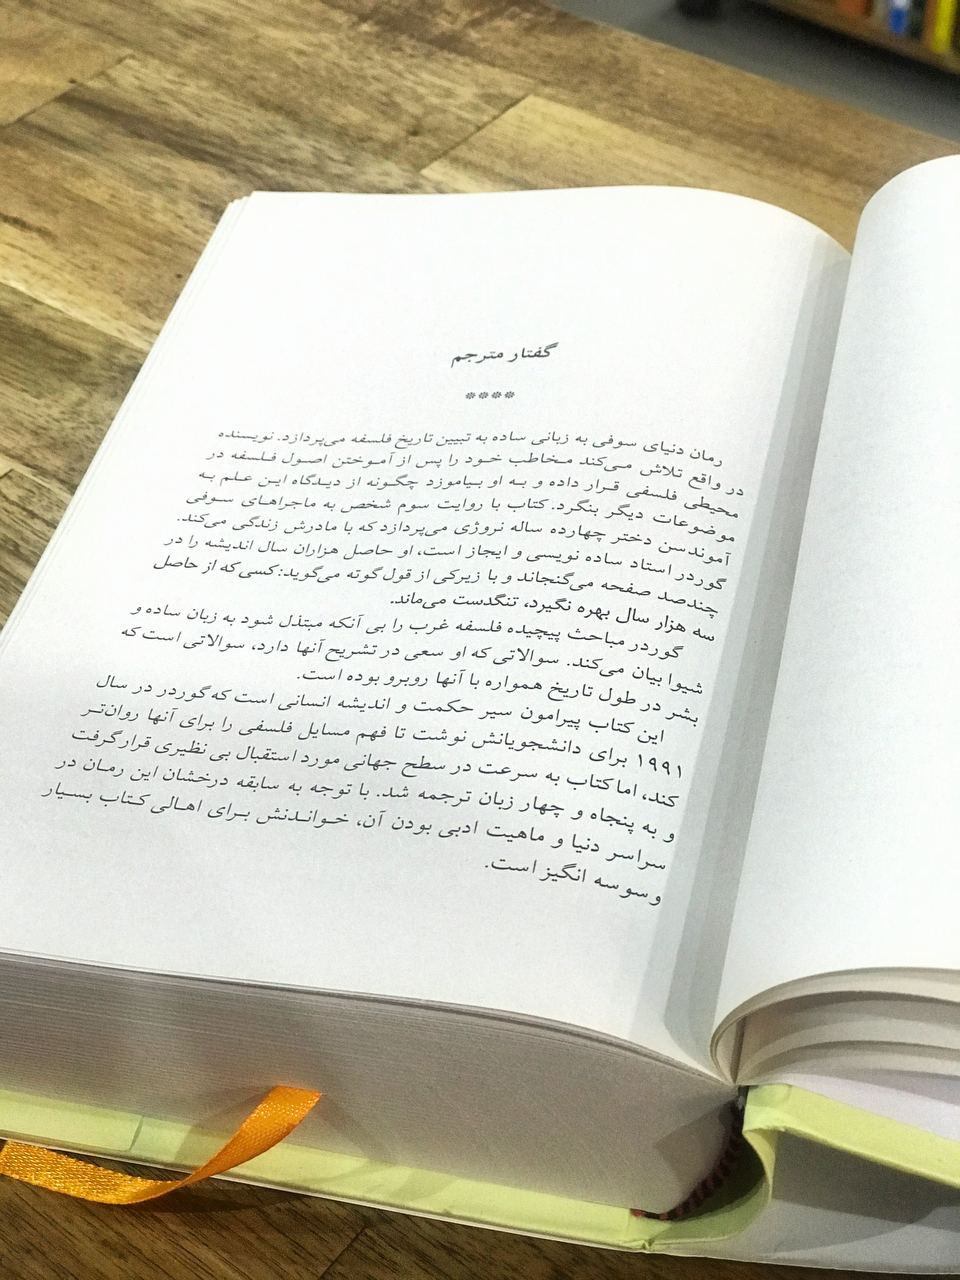 گفتار مترجم
****
رمان دنیای سوفی به زبانی ساده به تبیین تاریخ فلسفه می‌پردازد. نویسنده
در واقع تلاش می‌کند مخاطب خود را پس از آموختن اصول فلسفه در
محیطی فلسفی قرار داده و به او بیاموزد چگونه از دیدگاه این علم به
موضوعات دیگر بنگرد. کتاب با روایت سوم شخص به ماجراهای سوفی
آموندسن دختر چهارده ساله نروژی می‌پردازد که با مادرش زندگی می‌کند.
گوردر استاد ساده نویسی و ایجاز است، او حاصل هزاران سال اندیشه را در
چندصد صفحه می‌گنجاند و با زیرکی از قول گوته می‌گوید: کسی که از حاصل
سه هزار سال بهره نگیرد، تنگدست می‌ماند.
گوردر مباحث پیچیده فلسفه غرب را بی آنکه مبتذل شود به زبان ساده و
شیوا بیان می‌کند. سوالاتی که او سعی در تشریح آنها دارد، سوالاتی است که
بشر در طول تاریخ همواره با آنها روبرو بوده است.
این کتاب پیرامون سیر حکمت و اندیشه انسانی است که گوردر در سال
۱۹۹۱ برای دانشجویانش نوشت تا فهم مسایل فلسفی را برای آنها روان‌تر
کند، اما کتاب به سرعت در سطح جهانی مورد استقبال بی نظیری قرار گرفت
و به پنجاه و چهار زبان ترجمه شد. با توجه به سابقه درخشان این رمان در
سراسر دنیا و ماهیت ادبی بودن آن، خواندنش برای اهالی کتاب بسیار
وسوسه انگیز است.